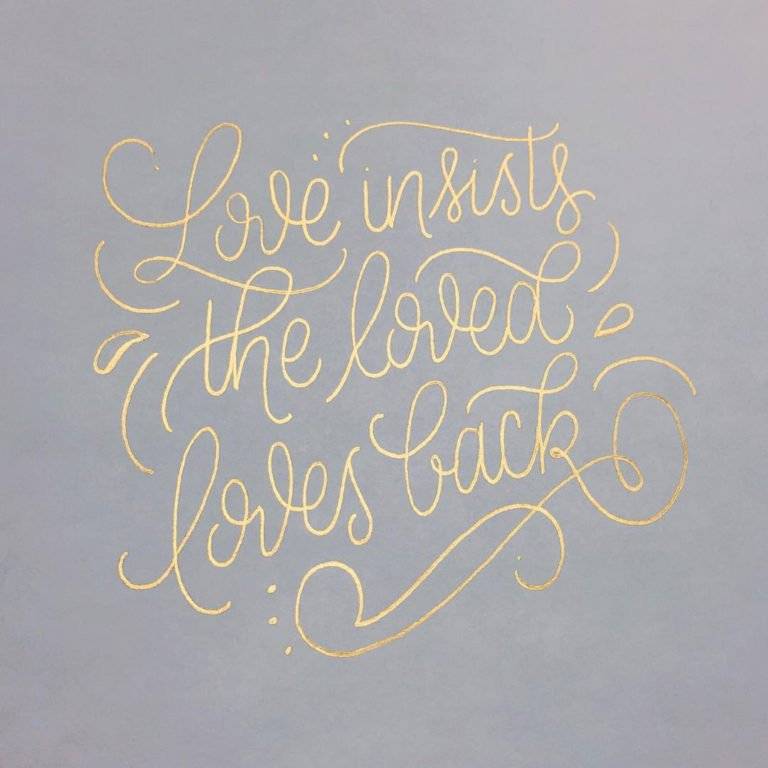 Love insists
the loved
loves back